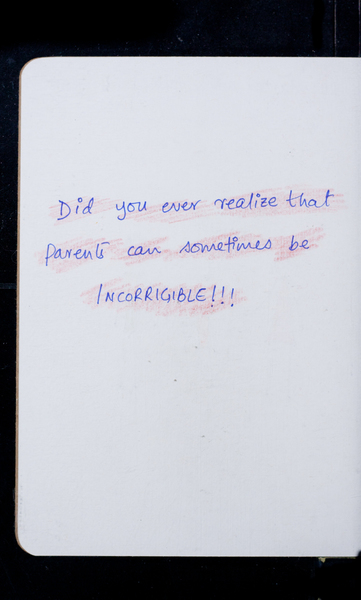 Did you ever realize that
parents can sometimes be
INCORRIGIBLE!!!